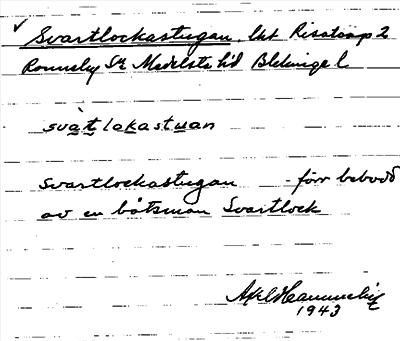 Svartlockastugan, lht Risatorp 2
Ronneby Sn Medelsta hd Blekinge l.
svatlokastuan
Svartlockastugan - förr bebodd
av en båtsman Svartlock
Axel
1943